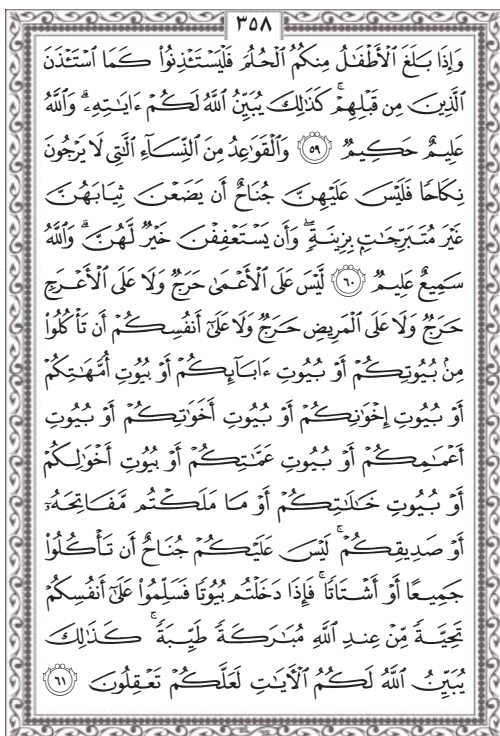 ٣٥٨
وَإِذَا بَلَغَ ٱلْأَطْفَٰلُ مِنكُمُ ٱلْحُلُمَ فَلْيَسْتَـْٔذِنُوا۟ كَمَا ٱسْتَـْٔذَنَ
ٱلَّذِينَ مِن قَبْلِهِمْ ۚ كَذَٰلِكَ يُبَيِّنُ ٱللَّهُ لَكُمْ ءَايَٰتِهِۦ ۗ وَٱللَّهُ
عَلِيمٌ حَكِيمٌ ٥٩ وَٱلْقَوَٰعِدُ مِنَ ٱلنِّسَآءِ ٱلَّٰتِى لَا يَرْجُونَ
نِكَاحًا فَلَيْسَ عَلَيْهِنَّ جُنَاحٌ أَن يَضَعْنَ ثِيَابَهُنَّ
غَيْرَ مُتَبَرِّجَٰتٍۭ بِزِينَةٍ ۖ وَأَن يَسْتَعْفِفْنَ خَيْرٌ لَّهُنَّ ۗ وَٱللَّهُ
سَمِيعٌ عَلِيمٌ ٦٠ لَّيْسَ عَلَى ٱلْأَعْمَىٰ حَرَجٌ وَلَا عَلَى ٱلْأَعْرَجِ
حَرَجٌ وَلَا عَلَى ٱلْمَرِيضِ حَرَجٌ وَلَا عَلَىٰٓ أَنفُسِكُمْ أَن تَأْكُلُوا۟
مِنۢ بُيُوتِكُمْ أَوْ بُيُوتِ ءَابَآئِكُمْ أَوْ بُيُوتِ أُمَّهَٰتِكُمْ
أَوْ بُيُوتِ إِخْوَٰنِكُمْ أَوْ بُيُوتِ أَخَوَٰتِكُمْ أَوْ بُيُوتِ
أَعْمَٰمِكُمْ أَوْ بُيُوتِ عَمَّٰتِكُمْ أَوْ بُيُوتِ أَخْوَٰلِكُمْ
أَوْ بُيُوتِ خَٰلَٰتِكُمْ أَوْ مَا مَلَكْتُم مَّفَاتِحَهُۥٓ
أَوْ صَدِيقِكُمْ ۚ لَيْسَ عَلَيْكُمْ جُنَاحٌ أَن تَأْكُلُوا۟
جَمِيعًا أَوْ أَشْتَاتًا ۚ فَإِذَا دَخَلْتُم بُيُوتًا فَسَلِّمُوا۟ عَلَىٰٓ أَنفُسِكُمْ
تَحِيَّةً مِّنْ عِندِ ٱللَّهِ مُبَٰرَكَةً طَيِّبَةً ۚ كَذَٰلِكَ
يُبَيِّنُ ٱللَّهُ لَكُمُ ٱلْـَٔايَٰتِ لَعَلَّكُمْ تَعْقِلُونَ ٦١